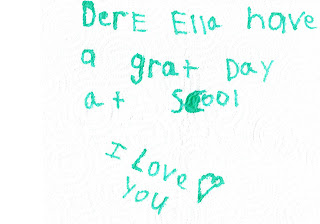 DerE Ella have
a grat Day
at Scool
I Love
you